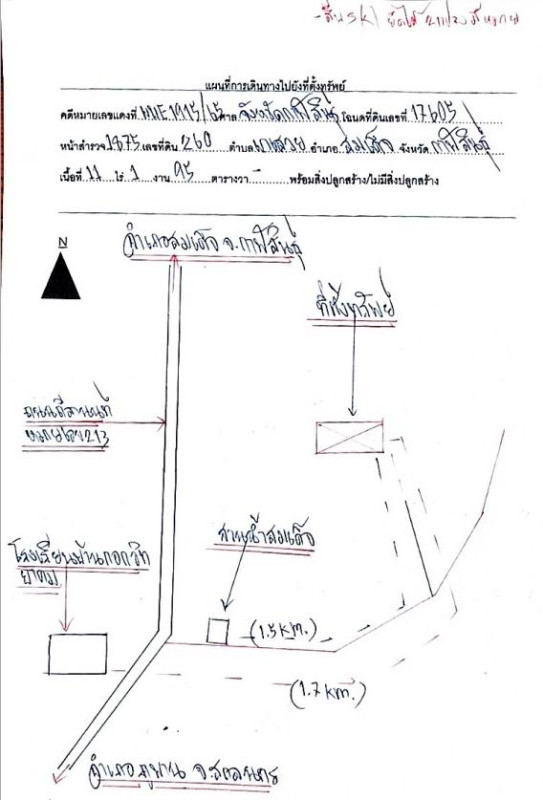 แผนที่การเดินทางไปยังที่ตั้งทรัพย์
คดีหมายเลขแดงที่ ผบE1915/65 ศาล จังหวัดกาฬสินธุ์ โฉนดที่ดินเลขที่ 17605
หน้าสำรวจ 1875 เลขที่ดิน 260 ตำบล แซงบาดาล อำเภอ สมเด็จ จังหวัด กาฬสินธุ์
เนื้อที่ 11 ไร่ 1 งาน 95 ตารางวา - พร้อมสิ่งปลูกสร้าง/ไม่มีสิ่งปลูกสร้าง
N
อำเภอสมเด็จ จ.กาฬสินธุ์
ที่ตั้งทรัพย์
หมายเลข 213
สวนน้ำสมเด็จ
(1.5 km.)
(1.7 km.)
อำเภอภูพาน จ.สกลนคร